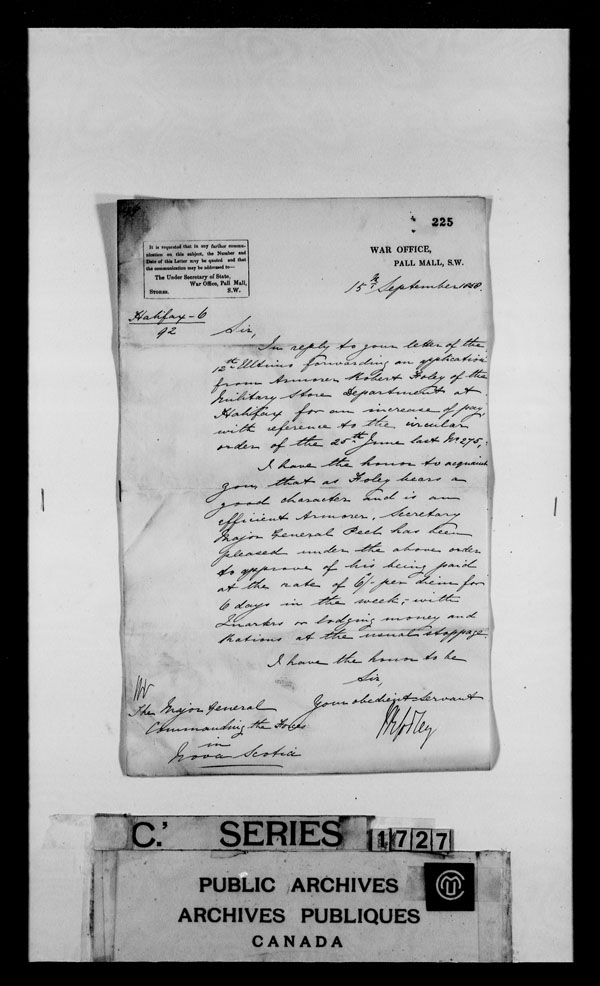 225
It is requested that in any further commu-
nication on this subject, the Number and
Date of this Letter may be quoted and that
the communication may be addressed to—
The Under Secretary of State,
War Office, Pall Mall,
Stores. S.W.
WAR OFFICE,
PALL MALL, S.W.
15th September 1858.
Halifax - 6
92
Sir,
In reply to your letter of the
12th Ultimo forwarding an application
from Armorer Robert Foley of the
Military Store Department at
Halifax for an increase of pay,
with reference to the circular
order of the 25th June last No 275,
I have the honor to acquaint
you that as Foley bears a
good character and is an
efficient Armorer, Secretary
Major General Peel has been
pleased under the above order
to approve of his being paid
at the rate of 6/- per diem for
6 days in the week, with
Quarters or lodging money and
Rations at the usual stoppage
I have the honor to be
Sir,
Your obedient Servant
The Major General
Commanding the Forces
in
Nova Scotia
C.' SERIES 1727
PUBLIC ARCHIVES
ARCHIVES PUBLIQUES
CANADA